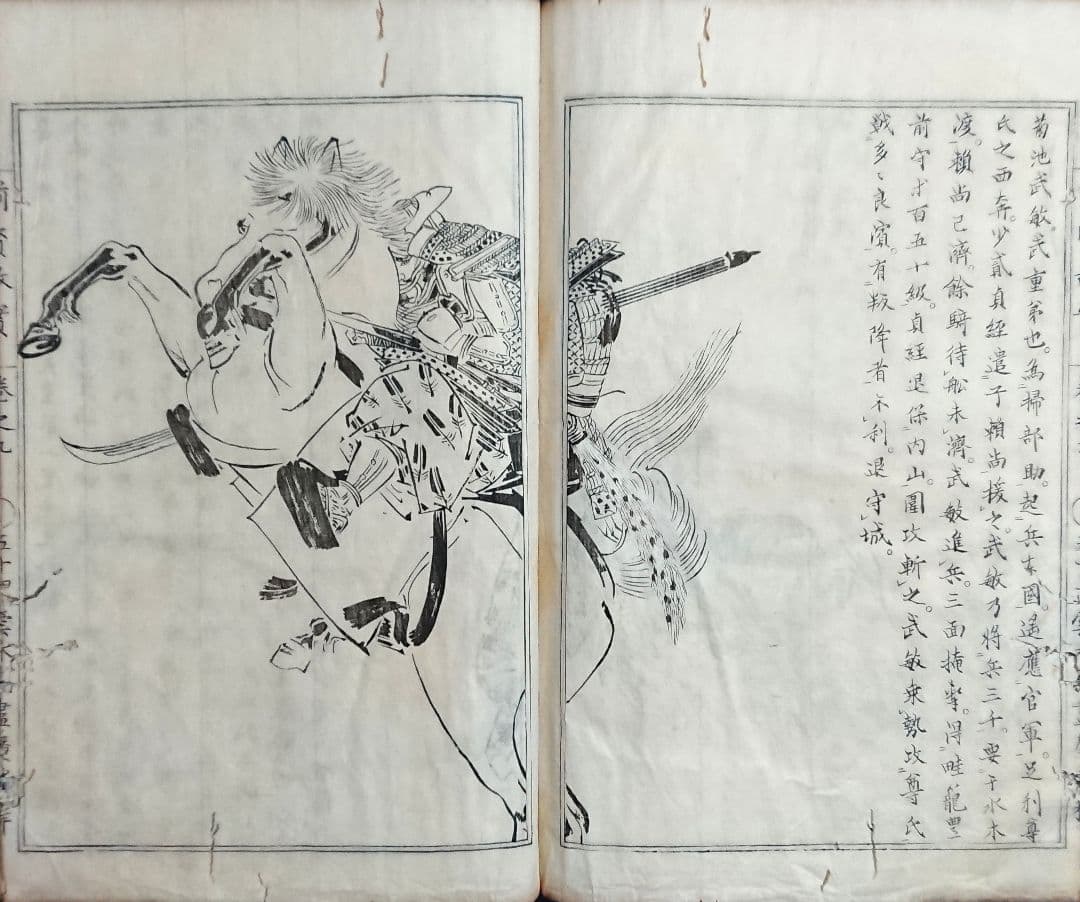 菊池武敏。武重弟也。為掃部助。起兵本國。遙應官軍。足利尊
氏之西奔。少貳貞經遣子賴尚援之。武敏乃將兵三千。要于水木
渡。賴尚已濟。餘騎待舩未濟。武敏進兵。三面掩擊。得畦籠豐
前守才百五十級。貞經退保内山。圍攻斬之。武敏乗勢攻尊氏
戰多〻良濱。有叛降者不利。退守城。
前賢故實
卷之九